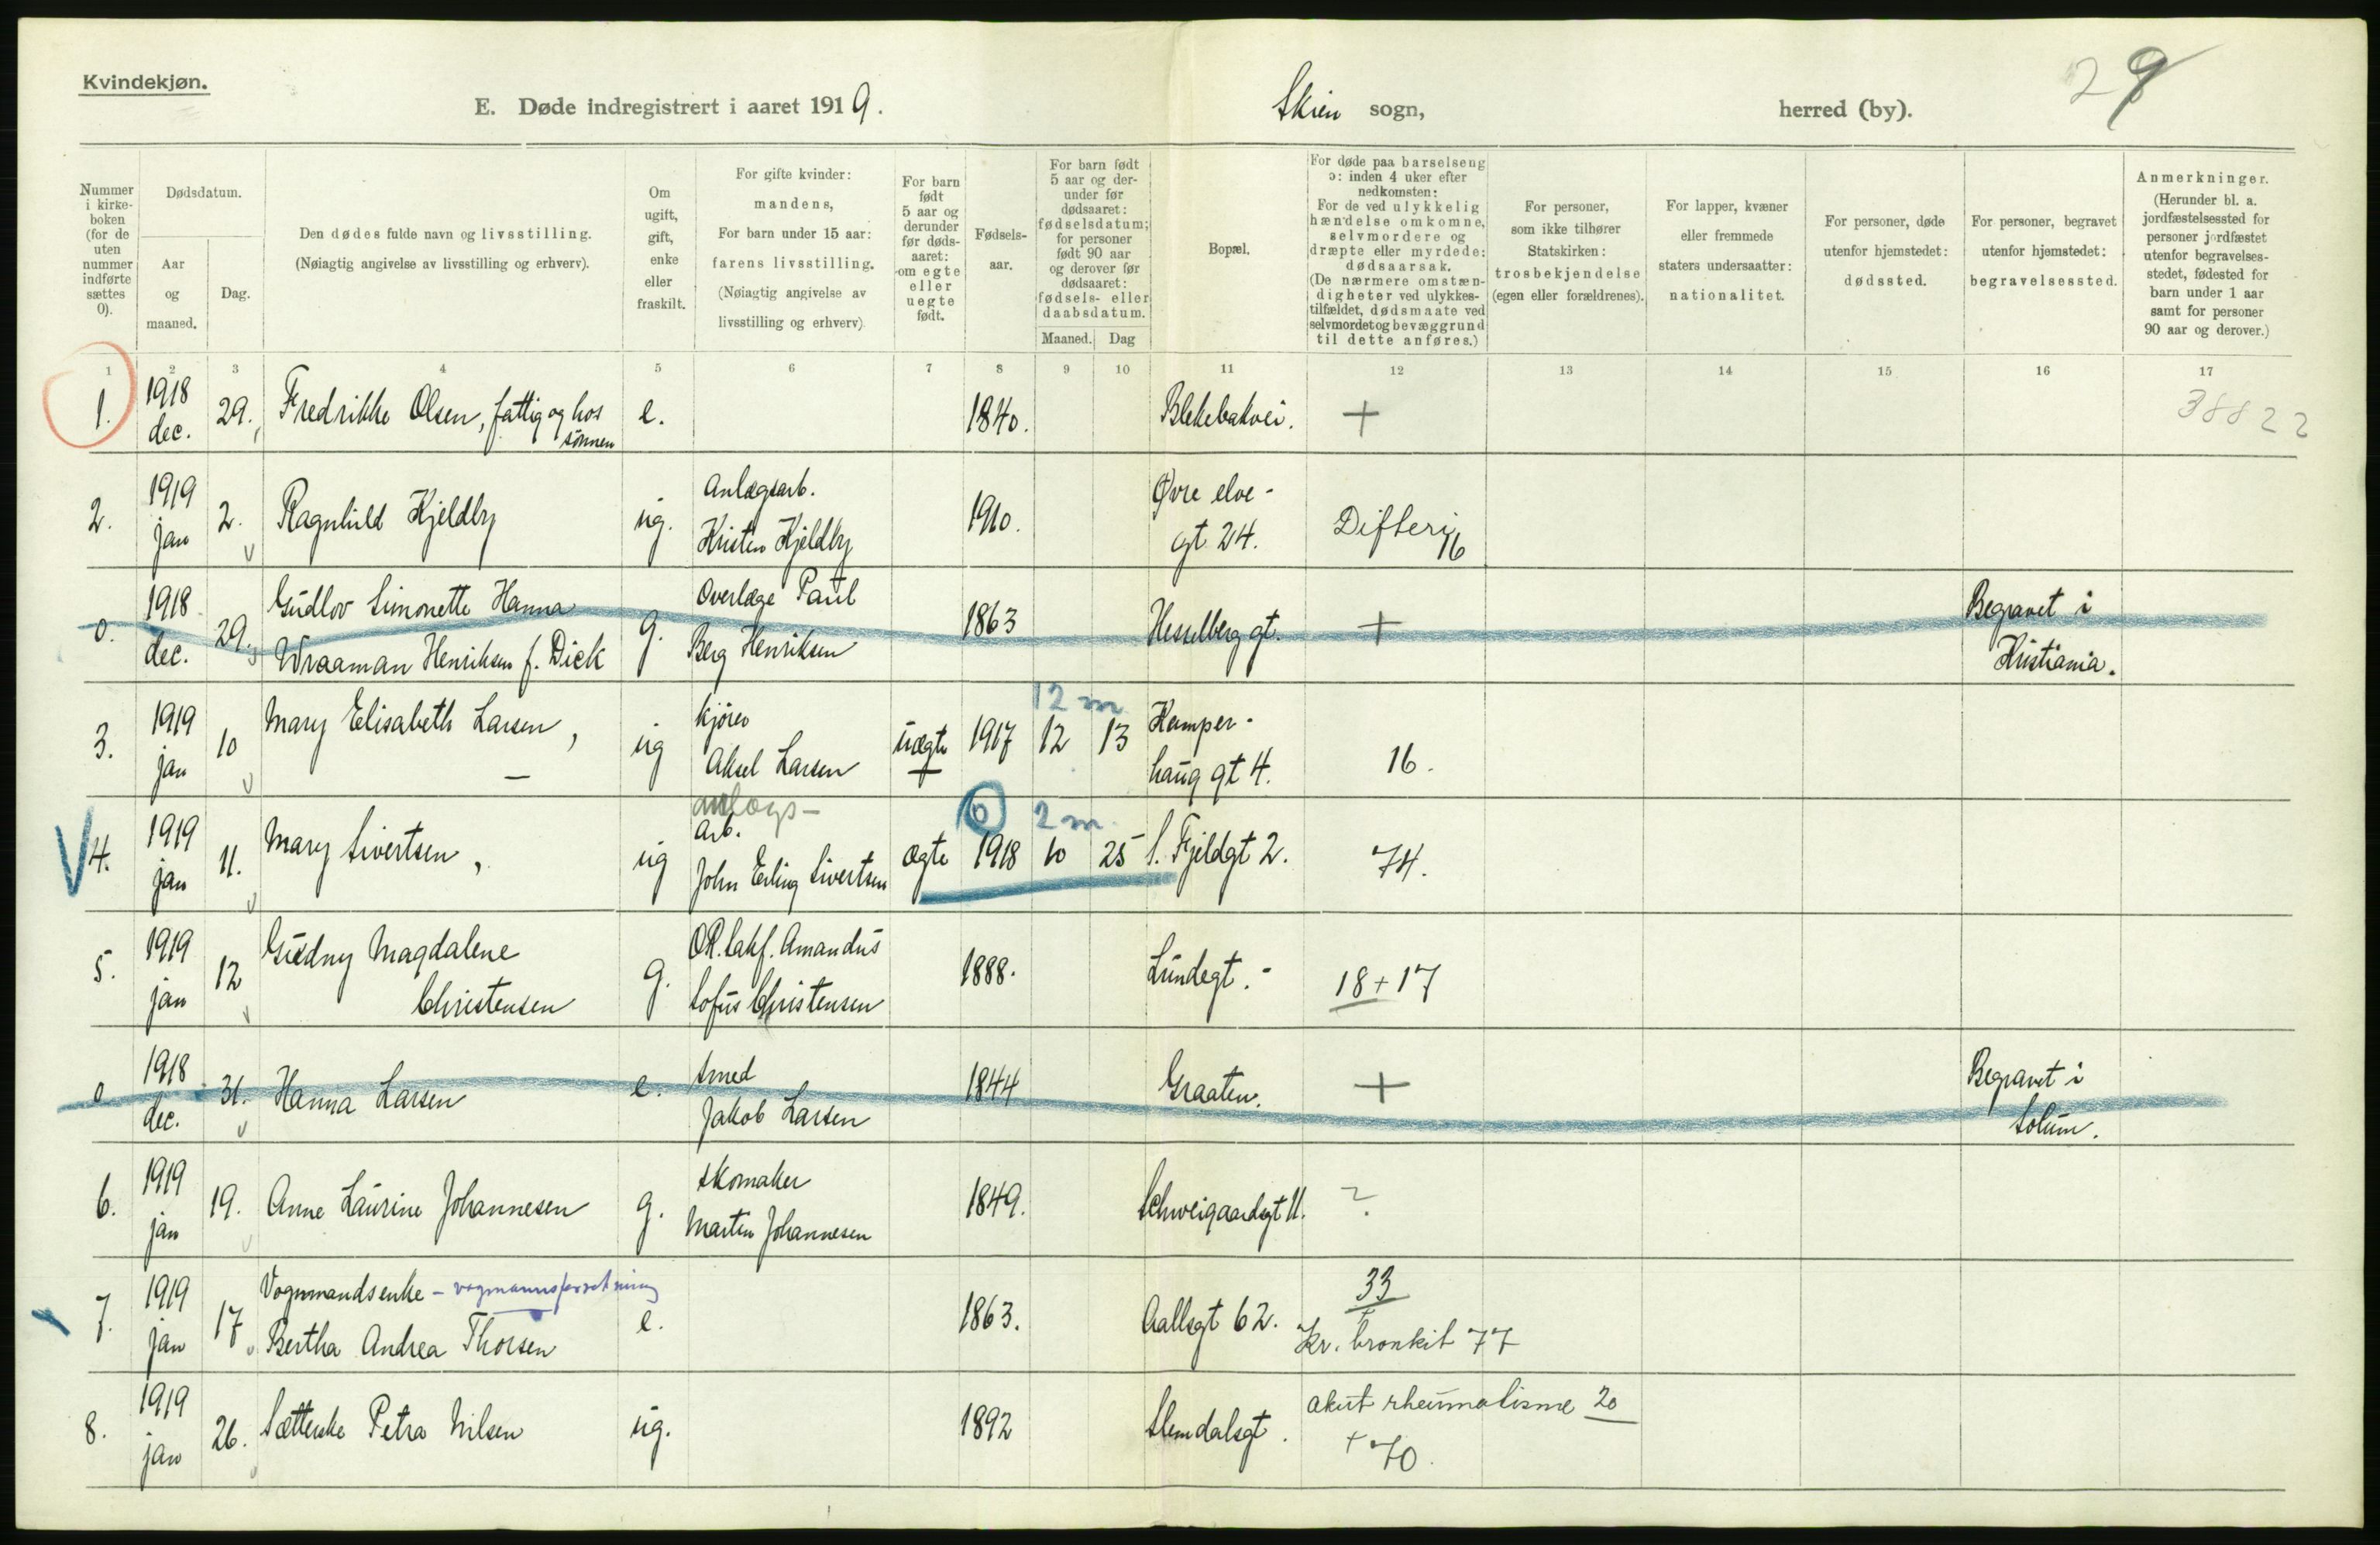 Kvindekjøn.
E. Døde indregistrert i aaret 1919.
Skien sogn,
herred (by).
29
Nummer i kirke-boken (for de uten nummer indførte sættes 0).
Dødsdatum.
Aar og maaned.
Dag.
Den dødes fulde navn og livsstilling.
(Nøiagtig angivelse av livsstilling og erhverv).
Om ugift, gift, enke eller fraskilt.
For gifte kvinder:
mandens,
For barn under 15 aar:
farens livsstilling.
(Nøiagtig angivelse av
livsstilling og erhverv)
For barn født 5 aar og derunder før døds-aaret: om egte eller uegte født.
Fødsels-aar.
For barn født 5 aar og der-under før dødsaaret: fødselsdatum; for personer født 90 aar og derover før dødsaaret: fødsels- eller daabsdatum.
Maaned.
Dag
Bopæl.
For døde paa barselseng
ɔ: inden 4 uker efter
nedkomsten:
For de ved ulykkelig
hændelse omkomne,
selvmordere og
dræpte eller myrdede:
dødsaarsak.
(De nærmere omstæn-
digheter ved ulykkes-
tilfældet, dødsmaate ved
selvmordet og bevæggrund
til dette anføres.)
For personer,
som ikke tilhører
Statskirken:
trosbekjendelse
(egen eller forældrenes).
For lapper, kvæner
eller fremmede
staters undersaatter:
nationalitet.
For personer, døde
utenfor hjemstedet:
dødssted.
For personer, begravet
utenfor hjemstedet:
begravelsessted.
Anmerkninger.
(Herunder bl. a.
jordfæstelsessted for
personer jordfæstet
utenfor begravelses-
stedet, fødested for
barn under 1 aar
samt for personer
90 aar og derover.)
1 2 3 4 5 6 7 8 9 10 11 12 13 14 15 16 17
1. 1918 dec. 29. Fredrikke Olsen, fattig og hos sönnen e. 1840. Blekebakvei. + 38822
2. 1919 jan 2. Ragnhild Kjeldby ug. Anlægsarb. Kristen Kjeldby 1910. Øvre elve-gt. 24. Difteri 16
0. 1918 dec. 29. Gudlov Simonette Hanna
Wraaman Henriksen f. Dick g. Overlæge Paul Berg Henriksen 1863 Hesselberg gt. + Begravet i Kristiania.
12 m
3. 1919 jan 10 Mary Elisabeth Larsen, ug kjörer Aksel Larsen uægte 1917 12 13 Kamper-haug gt 4. 16.
anlægs- 0 2 m.
4. 1919 jan 11. Mary Sivertsen, ug arb. John Erling Sivertsen ægte 1918 10 25 S. Fjeldgt 2. 74.
5. 1919 jan 12 Gudny Magdalene
Christensen g. Amandus Sofus Christensen 1888. Lundegt. - 18+17
0 1918 dec. 31. Hanna Larsen e. smed Jakob Larsen 1844 Graaten. + Begravet i Solum.
6. 1919 jan 19. Anne Laurine Johannesen g. skomaker Martin Johannesen 1849. Schweigaardsgt 11. ?
7. 1919 jan 17 Vognmandsenke - vognmannsforretning
Bertha Andrea Thorsen e. 1863. Aallsgt 62. 33 + Kr. bronkit 77
8. 1919 jan 26. Sætterske Petra Nilsen ug. 1892 Slemdalsgt. akut rheumatisme 20 + 70.